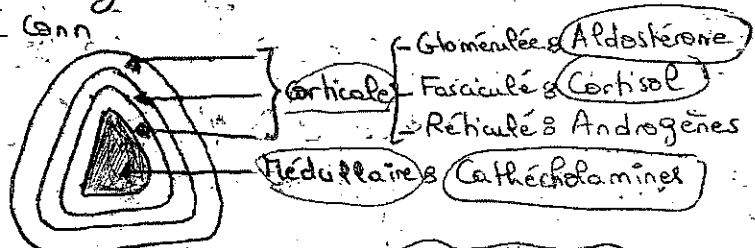 Conn
- Glomérulée : Aldostérone
Corticale - Fasciculé : Cortisol
-> Réticulé : Androgènes
Médullaire : Cathécholamines